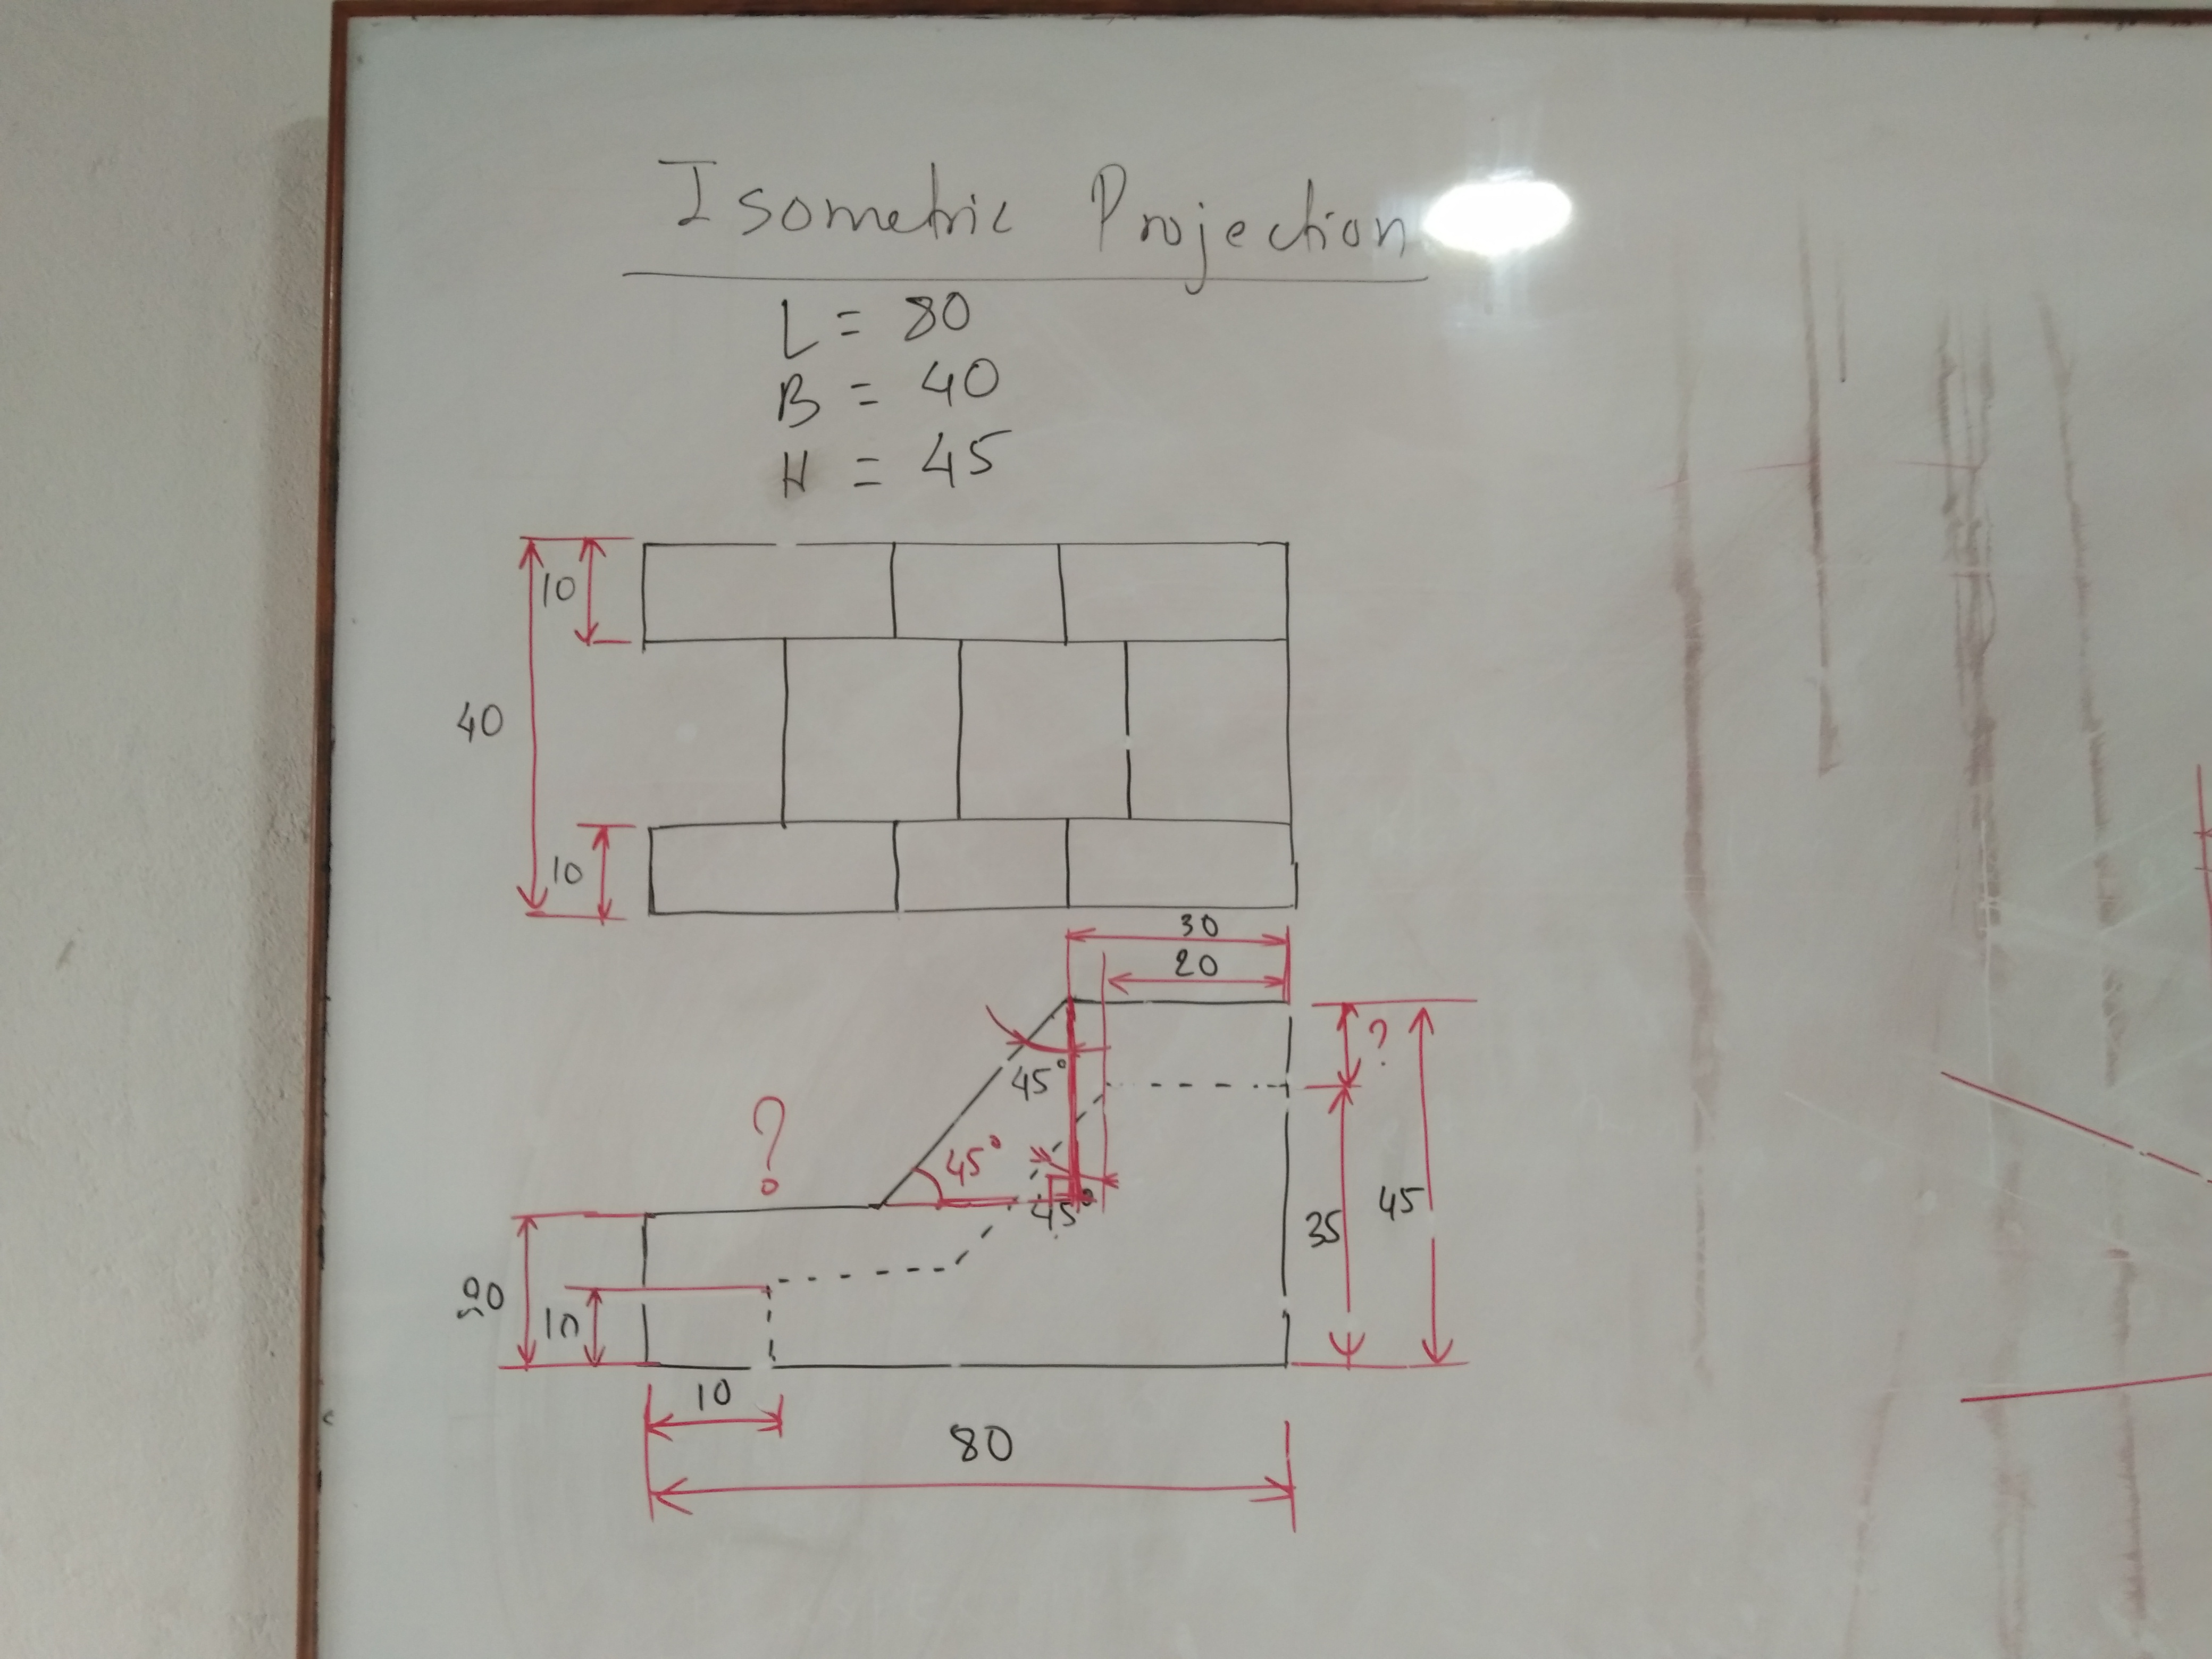 Isometric Projection
L = 80
B = 40
H = 45
10
40
10
30
20
?
45°
?
45°
45°
35
45
20
10
10
80